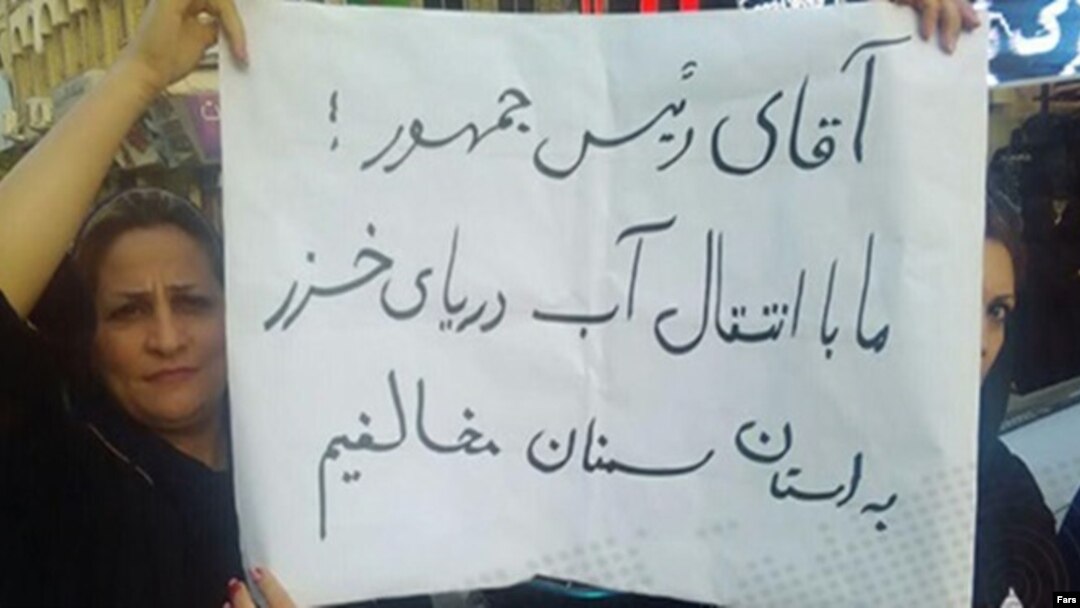 آقای رئیس جمهور !
ما با انتقال آب دریای خزر
به استان سمنان مخالفیم
Fars